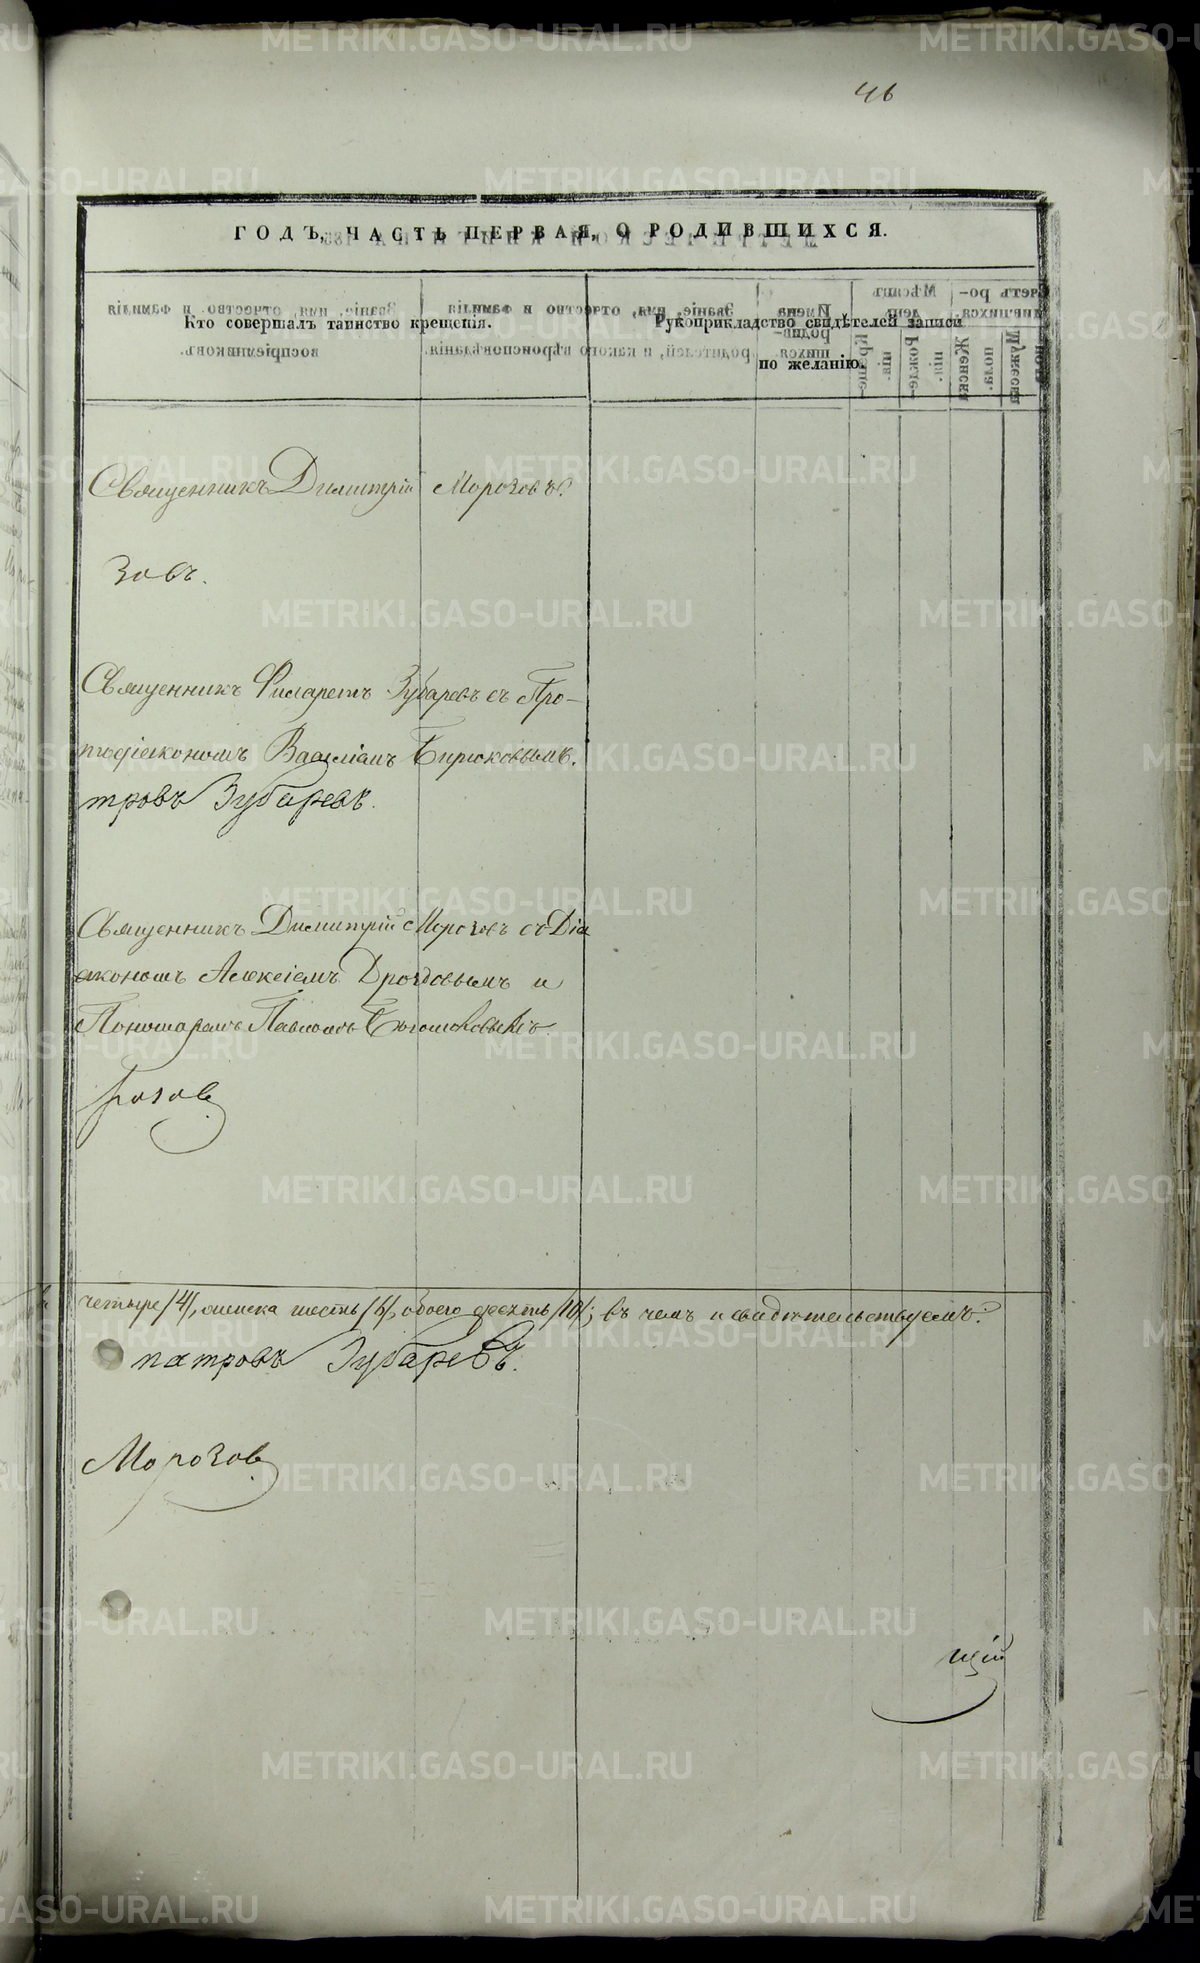 46
ГОДЪ, ЧАСТЬ ПЕРВАЯ, О РОДИВШИХСЯ.
Кто совершалъ таинство крещенія.
Рукоприкладство свидѣтелей записи
по желанію.
Священникъ Димитрій Морозовъ.
зовъ.
Священникъ Филаретъ Зубаревъ съ Про-
тодіакономъ Василіемъ Бирюковымъ.
тровъ Зубаревъ.
Священникъ Димитрій Морозовъ съ Діа
кономъ Алексіемъ Дроздовымъ и
Пономаремъ Павломъ
розовъ
четыре /4/, женска шесть /6/, обоего десять /10/; въ чемъ и свидѣтельствуемъ:
патровъ Зубаревъ.
Морозовъ
щій
METRIKI.GASO-URAL.RU